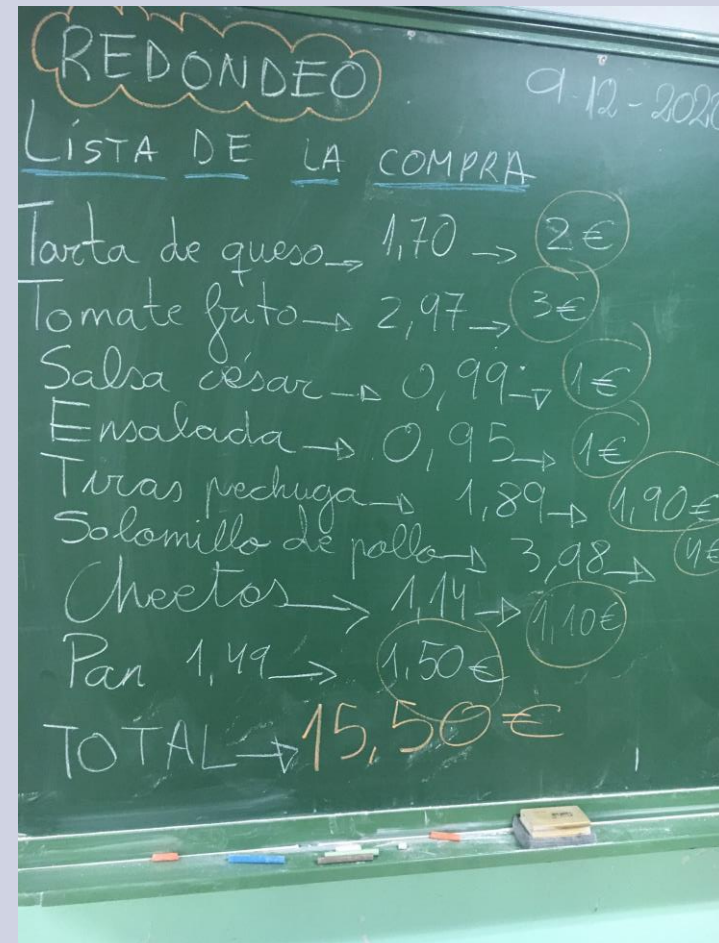 REDONDEO
9-12-2020
LISTA DE LA COMPRA
Tarta de queso → 1,70 → 2€
Tomate frito → 2,97 → 3€
Salsa césar → 0,99 → 1€
Ensalada → 0,95 → 1€
Tiras pechuga → 1,89 → 1,90€
Solomillo de pollo → 3,98 → 4€
Cheetos → 1,14 → 1,10€
Pan 1,49 → 1,50€
TOTAL → 15,50€